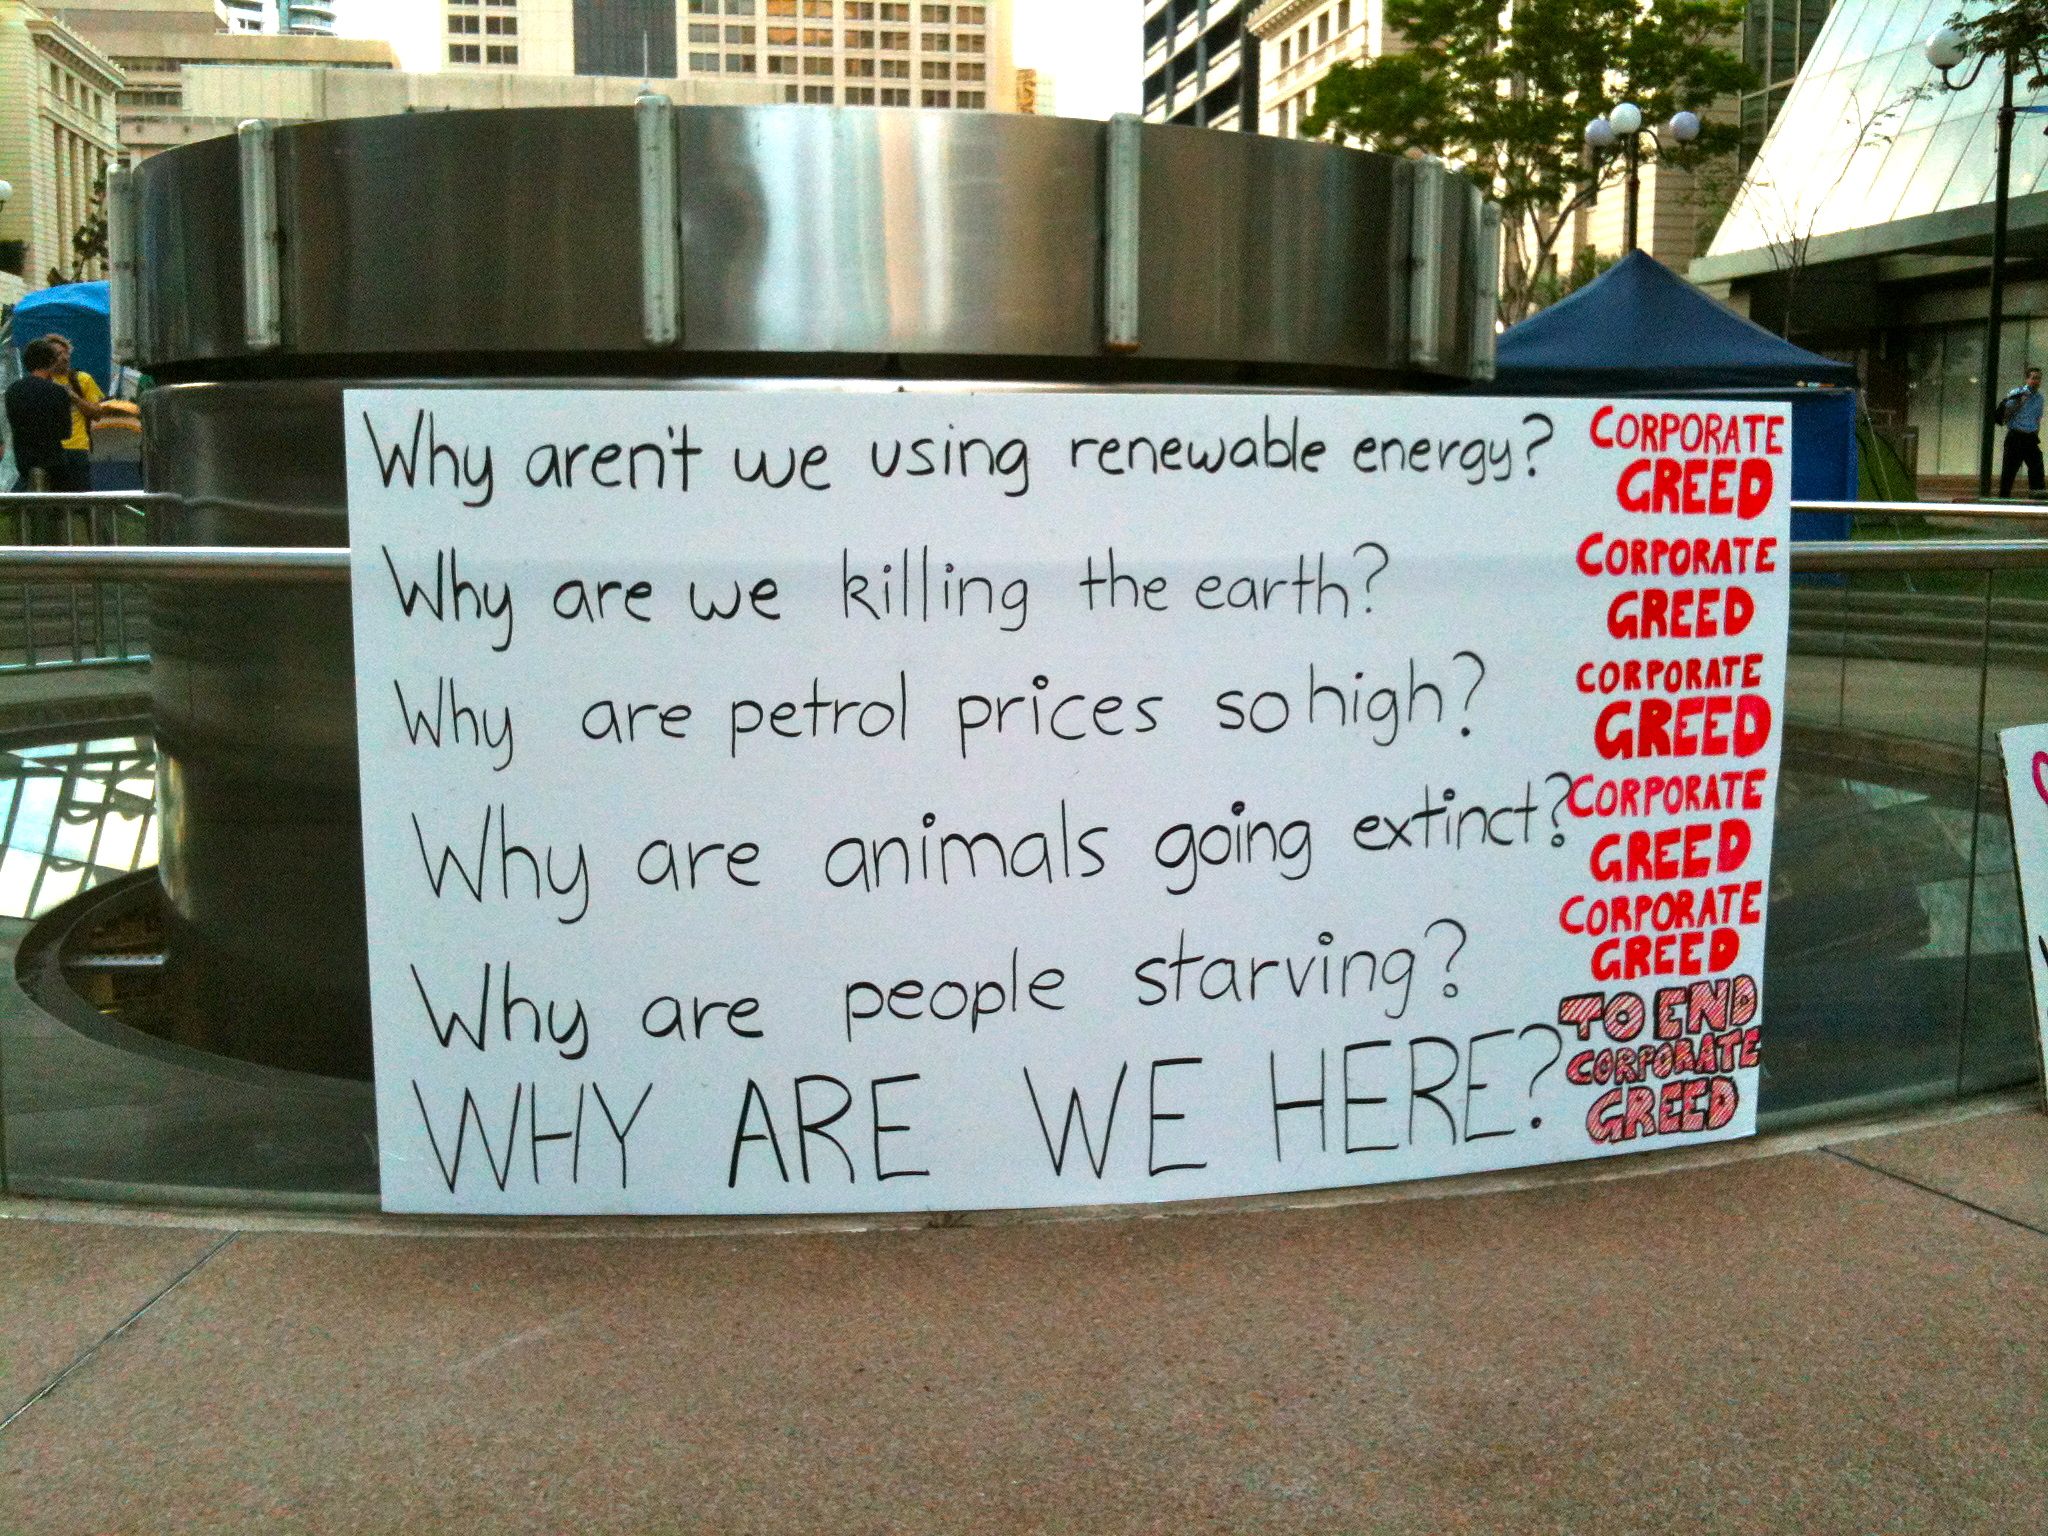 Why aren't we using renewable energy? CORPORATE
GREED
Why are we killing the earth? CORPORATE
GREED
Why are petrol prices so high? CORPORATE
GREED
Why are animals going extinct? CORPORATE
GREED
Why are people starving? CORPORATE
GREED
WHY ARE WE HERE? TO END
CORPORATE
GREED